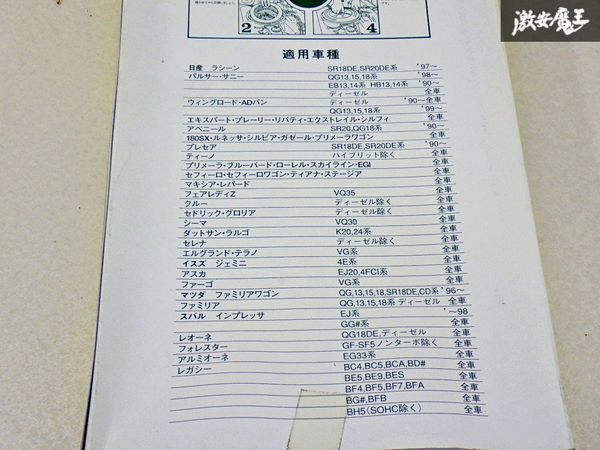 激安魔王
2
4
適用車種
日産 ラシーン SR18DE,SR20DE系 '97〜
パルサー・サニー QG13,15,18系 '98〜
EB13,14系 HB13,14系 '90〜
ディーゼル 全車
ウィングロード・ADバン ディーゼル '90〜全車
QG13,15,18系 '99〜
エキスパート・プレーリー・リバティ・エクストレイル・シルフィ 全車
アベニール SR20,QG18系 '90〜
180SX・ルネッサ・シルビア・ガゼール・プリメーラワゴン 全車
プレセア SR18DE,SR20DE系 '90〜
ティーノ ハイブリット除く 全車
プリメーラ・ブルーバード・ローレル・スカイライン・EGI 全車
セフィーロ・セフィーロワゴン・ティアナ・ステージア 全車
マキシア・レパード 全車
フェアレディZ VQ35 全車
クルー ディーゼル除く 全車
セドリック・グロリア ディーゼル除く 全車
シーマ VQ30 全車
ダットサン・ラルゴ K20,24系 全車
セレナ ディーゼル除く 全車
エルグランド・テラノ VG系 全車
イスズ ジェミニ 4E系 全車
アスカ EJ20,4FCI系 全車
ファーゴ VG系 全車
マツダ ファミリアワゴン QG,13,15,18,SR18DE,CD系 '96〜
ファミリア QG,13,15,18系 ディーゼル 全車
スバル インプレッサ EJ系 '〜98
GG#系 全車
レオーネ QG18DE,ディーゼル 全車
フォレスター GF-SF5ノンターボ除く 全車
アルミオーネ EG33系 全車
レガシー BC4,BC5,BCA,BD# 全車
BE5,BE9,BES 全車
BF4,BF5,BF7,BFA 全車
BG#,BFB 全車
BH5(SOHC除く) 全車